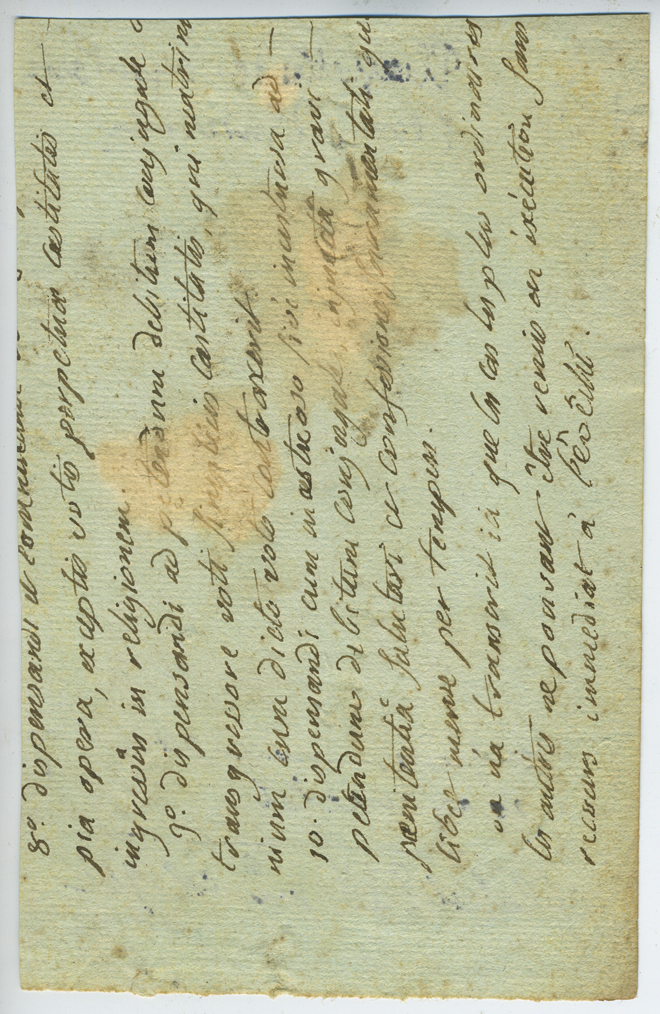 8°. dispensandi et commutandi
pia opera, exceptis votis perpetuæ castitatis et
ingressûs in religionem.
9°. dispensandi ad petendum debitum conjugale
transgressore voti simplicis castitatis, qui matrim
nium cum dicto voto contraxerit.
10. dispensandi cum incestuoso sive incestuosa ad
petendum debitum conjugale, injuncta gravi
pœnitentiâ salutari et confessione sacramentali
liber menve per tempus.
on n'a transcrit ici que les cas les plus ordinaires
les autres ne pouvant être venus en éxécution sans
recours immédiat à l'évêché.